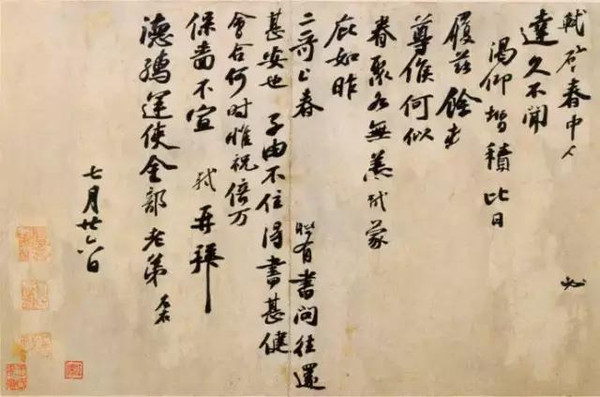 軾啓春中人 必
達久不聞
渴仰增積比日
履茲餘
尊候何似
眷聚各無恙軾蒙
庇如昨
二哥上春 有書問往還
甚安也子由不住得書甚健
會合何時惟祝倍万
保嗇不宣軾再拜
德孺運使金部老弟
七月廿六日